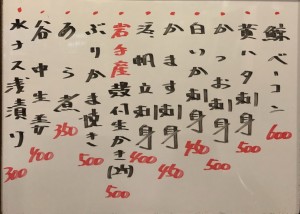 鯨ベーコン 600
黄ハタ刺身 500
かつお刺身 500
白いか刺身 450
かます刺身 450
活帆立刺身 400
岩手産殻付生かき(内) 500
ぶりかま焼き 500
あら煮 350
谷中生姜 400
水ナス浅漬り 300